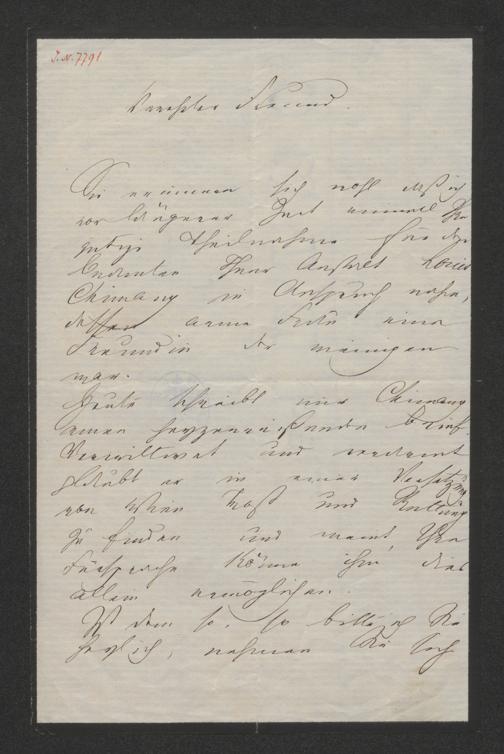 I. N. 7791
Verehrter Freund.
Sie erinnern sich wohl daß ich
vor längerer Zeit einmal Ihre
gütige Theilnahme für den
Beamten Ihrer Anstalt Louis
Chimang in Anspruch nahm,
dessen arme Frau eine
Freundin der meinigen
war.
Heute schreibt mir Chimang
einen herzzerreißenden Brief.
Verwittwet und
glaubt er in einer Versetzung
von Wien Trost und Rettung
zu finden und meint, Ihre
Fürsprache könne ihm dies
allein ermöglichen.
Ist dem so, so bitte ich Sie
herzlich, nehmen Sie sich